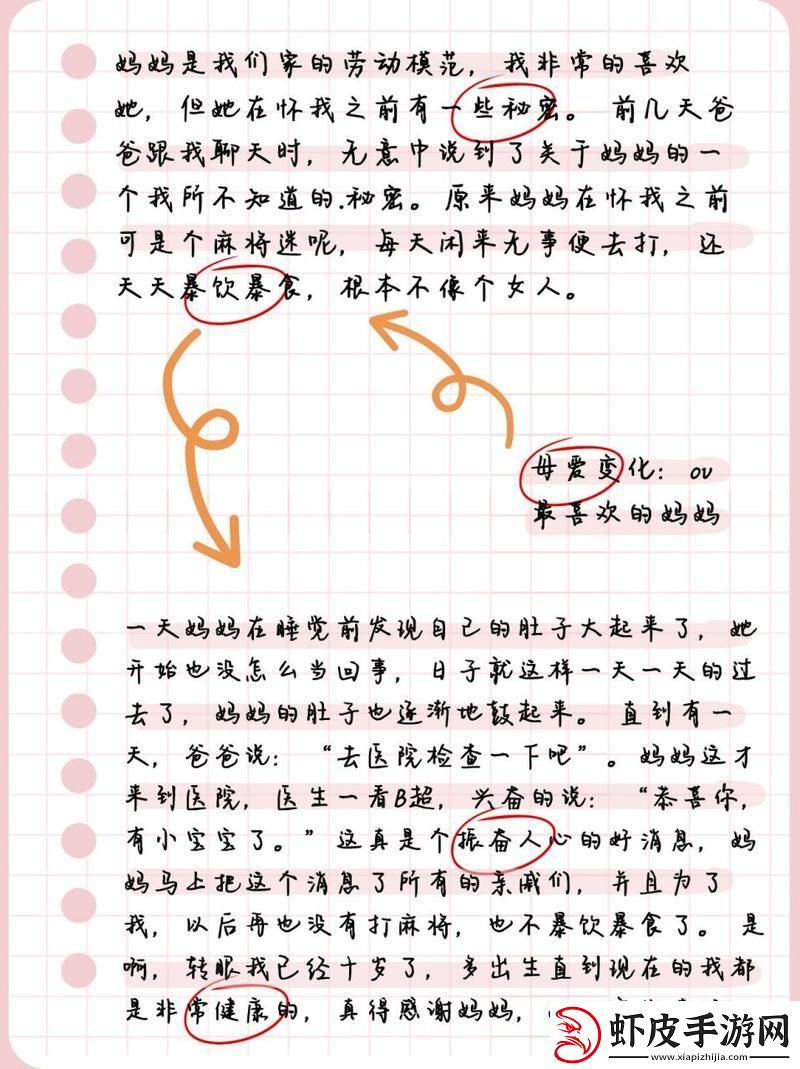 妈妈是我们家的劳动模范，我非常的喜欢
她，但她在怀我之前有一些秘密。前几天爸
爸跟我聊天时，无意中说到了关于妈妈的一
个我所不知道的.秘密。原来妈妈在怀我之前
可是个麻将迷呢，每天闲来无事便去打，还
天天暴饮暴食，根本不像个女人。
母爱变化：ov
最喜欢的妈妈
一天妈妈在睡觉前发现自己的肚子大起来了，她
开始也没怎么当回事，日子就这样一天一天的过
去了，妈妈的肚子也逐渐地鼓起来。直到有一
天，爸爸说：“去医院检查一下吧”。妈妈这才
来到医院，医生一看B超，兴奋的说：“恭喜你，
有小宝宝了。”这真是个振奋人心的好消息，妈
妈马上把这个消息了所有的亲戚们，并且为了
我，以后再也没有打麻将，也不暴饮暴食了。是
啊，转眼我已经十岁了，多出生直到现在的我都
是非常健康的，真得感谢妈妈，
虾皮手游网
www.xiapizhijia.com